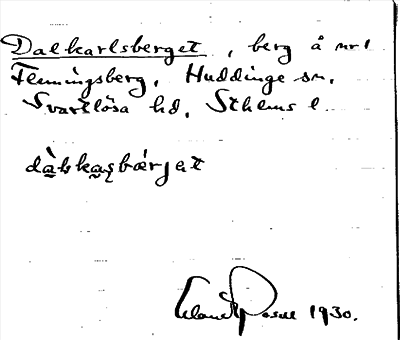 Dalkarlsberget, berg å nr 1
Flemingsberg, Huddinge sn,
Svartlösa hd, Sthlms l
dàlskaʂbǽrjət
1930.